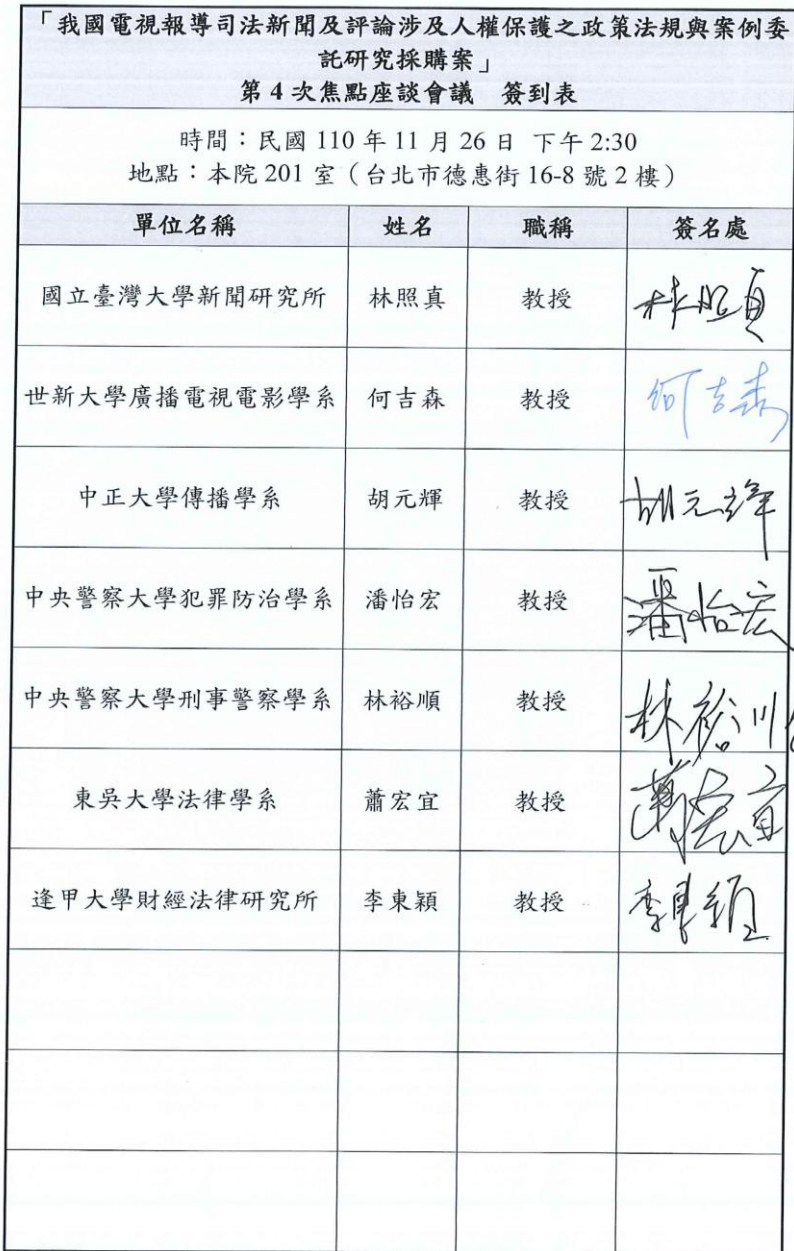 「我國電視報導司法新聞及評論涉及人權保護之政策法規與案例委
託研究採購案」
第 4 次焦點座談會議 簽到表
時間：民國 110 年 11 月 26 日 下午 2:30
地點：本院 201 室（台北市德惠街 16-8 號 2 樓）
單位名稱 姓名 職稱 簽名處
國立臺灣大學新聞研究所 林照真 教授 林照真
世新大學廣播電視電影學系 何吉森 教授 何吉森
中正大學傳播學系 胡元輝 教授 胡元輝
中央警察大學犯罪防治學系 潘怡宏 教授 潘怡宏
中央警察大學刑事警察學系 林裕順 教授 林裕順
東吳大學法律學系 蕭宏宜 教授 蕭宏宜
逢甲大學財經法律研究所 李東穎 教授 李東穎